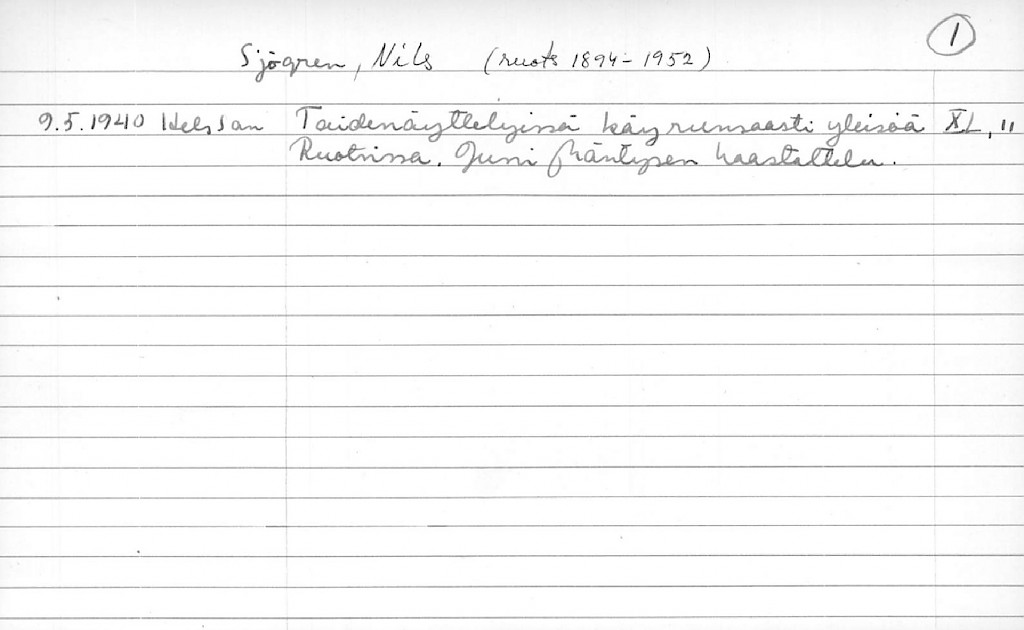 1
Sjögren, Nils (ruots 1894-1952)
9.5.1940 Hels San Taidenäyttelyissä käy runsaasti yleisöä XL, 11
Ruotsissa. Jussi Mäntysen haastattelu.